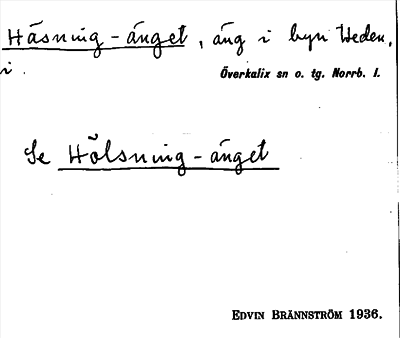 Häsning-änget, äng i byn Heden,
i. Överkalix sn o. tg. Norrb. l.
Se Hölsning-änget
EDVIN BRÄNNSTRÖM 1936.